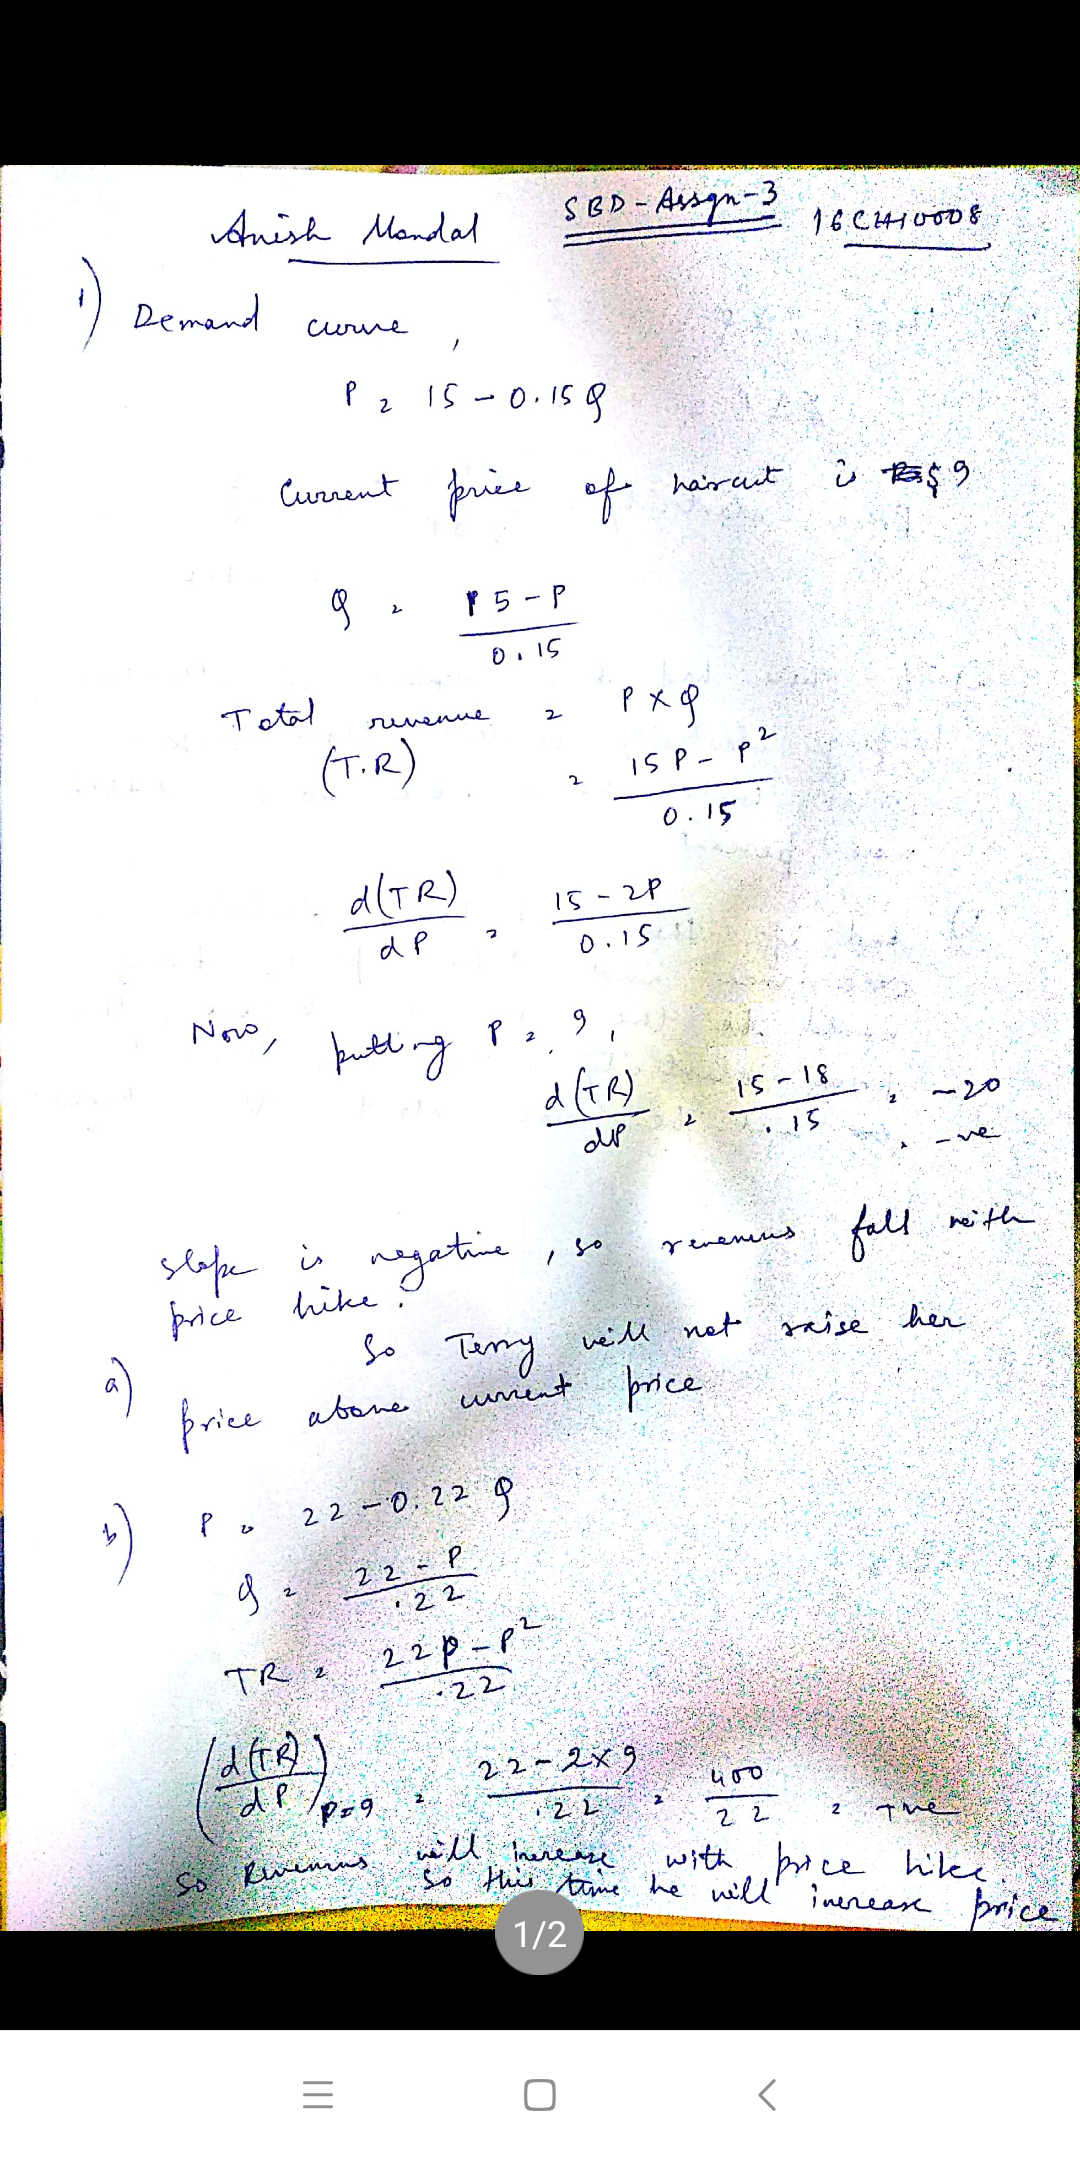 SBD - Assgn-3
Anish Mondal
16CH10008
1) Demand curve,
P = 15 - 0.15 Q
Current price of haircut is $ 9
Q = 15 - P / 0.15
Total revenue = P x Q
(T.R) = 15 P - P² / 0.15
d(TR) / dP = 15 - 2P / 0.15
Now, putting P = 9,
d(TR) / dP = 15 - 18 / .15 = -20
= -ve
slope is negative, so revenues fall with
price hike.
a) So Terry will not raise her
price above current price
b) P = 22 - 0.22 Q
Q = 22 - P / .22
TR = 22P - P² / .22
(d(TR) / dP) P=9 = 22 - 2x9 / .22 = 400 / 22 = +ve
So Revenues will increase with price hike.
So this time he will increase price
1/2